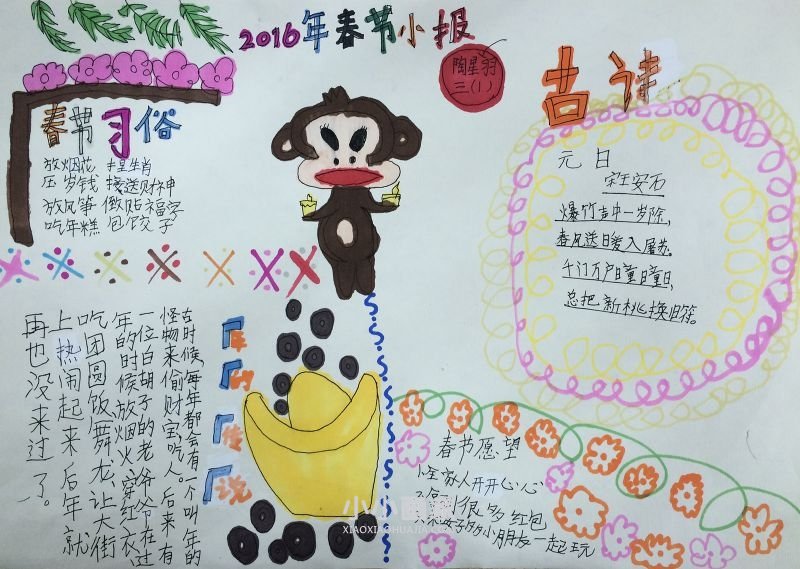 2016年春节小报
陶星羽
三(1)
春节习俗
放烟花 挂生肖
压岁钱 接送财神
放风筝 倒贴福字
吃年糕 包饺子
古诗
元日
宋王安石
爆竹声中一岁除,
春风送暖入屠苏。
千门万户曈曈日,
总把新桃换旧符。
年的传说
在时候,每年都会有一个叫年的
怪物来偷财宝,吃人。后来有
一位白胡子的老爷爷在过
年的时候放烟火,穿红衣,
吃团圆饭,舞龙,让大街
上热闹起来后年就
再也没来过了。
春节愿望
全家人开开心心
很多红包
小朋友一起玩